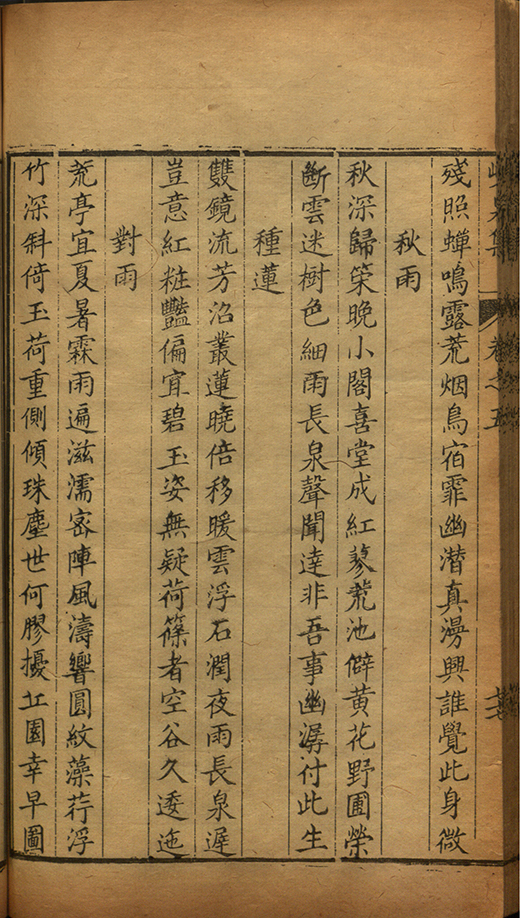 殘照蟬鳴露荒烟鳥宿霏幽潛真漫興誰覺此身微
秋雨
秋深歸築晚小閣喜堂成紅蓼荒池僻黄花野圃榮
斷雲迷樹色細雨長泉聲聞達非吾事幽潺付此生
種蓮
雙鏡流芳沼叢蓮曉倍移暖雲浮石潤夜雨長泉遲
豈意紅粧豔偏宜碧玉姿無疑荷篠者空谷久逶迤
對雨
荒亭宜夏暑霖雨遍滋濡宻陣風濤響圓紋藻荇浮
竹深斜倚玉荷重側傾珠塵世何膠擾丘園幸早圖
泉集
卷之五